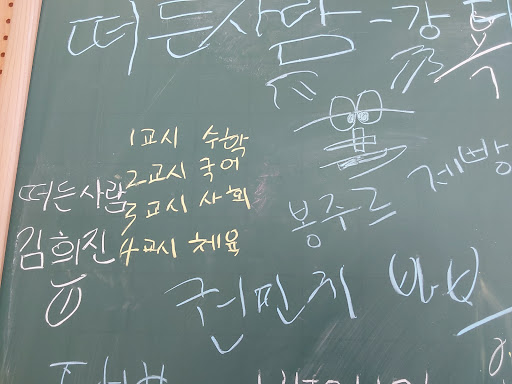 떠든사람 - 강
1교시 수학
2교시 국어
3교시 사회
4교시 체육
떠든사람
김희진
①
봉주르
제빵
권민지 바보